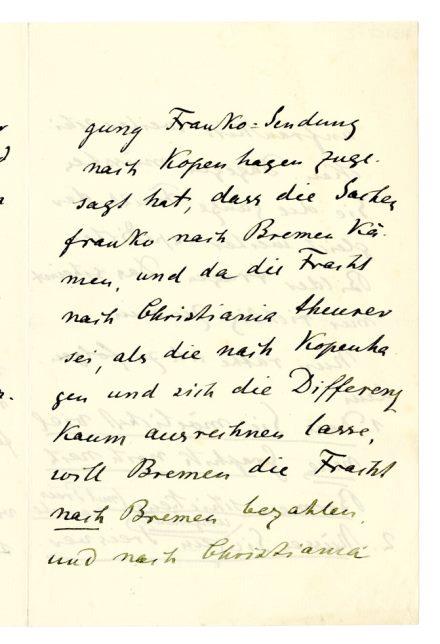 gung Franko=Sendung
nach Kopenhagen zuge-
sagt hat, dass die Sachen
franko nach Bremen kä-
men, und da die Fracht
nach Christiania theurer
sei, als die nach Kopenha
gen und sich die Differenz
kaum ausrechnen lasse,
will Bremen die Fracht
nach Bremen bezahlen,
und nach Christiania